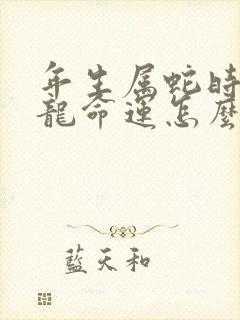 年生属蛇時
龍命運怎麼
藍天和